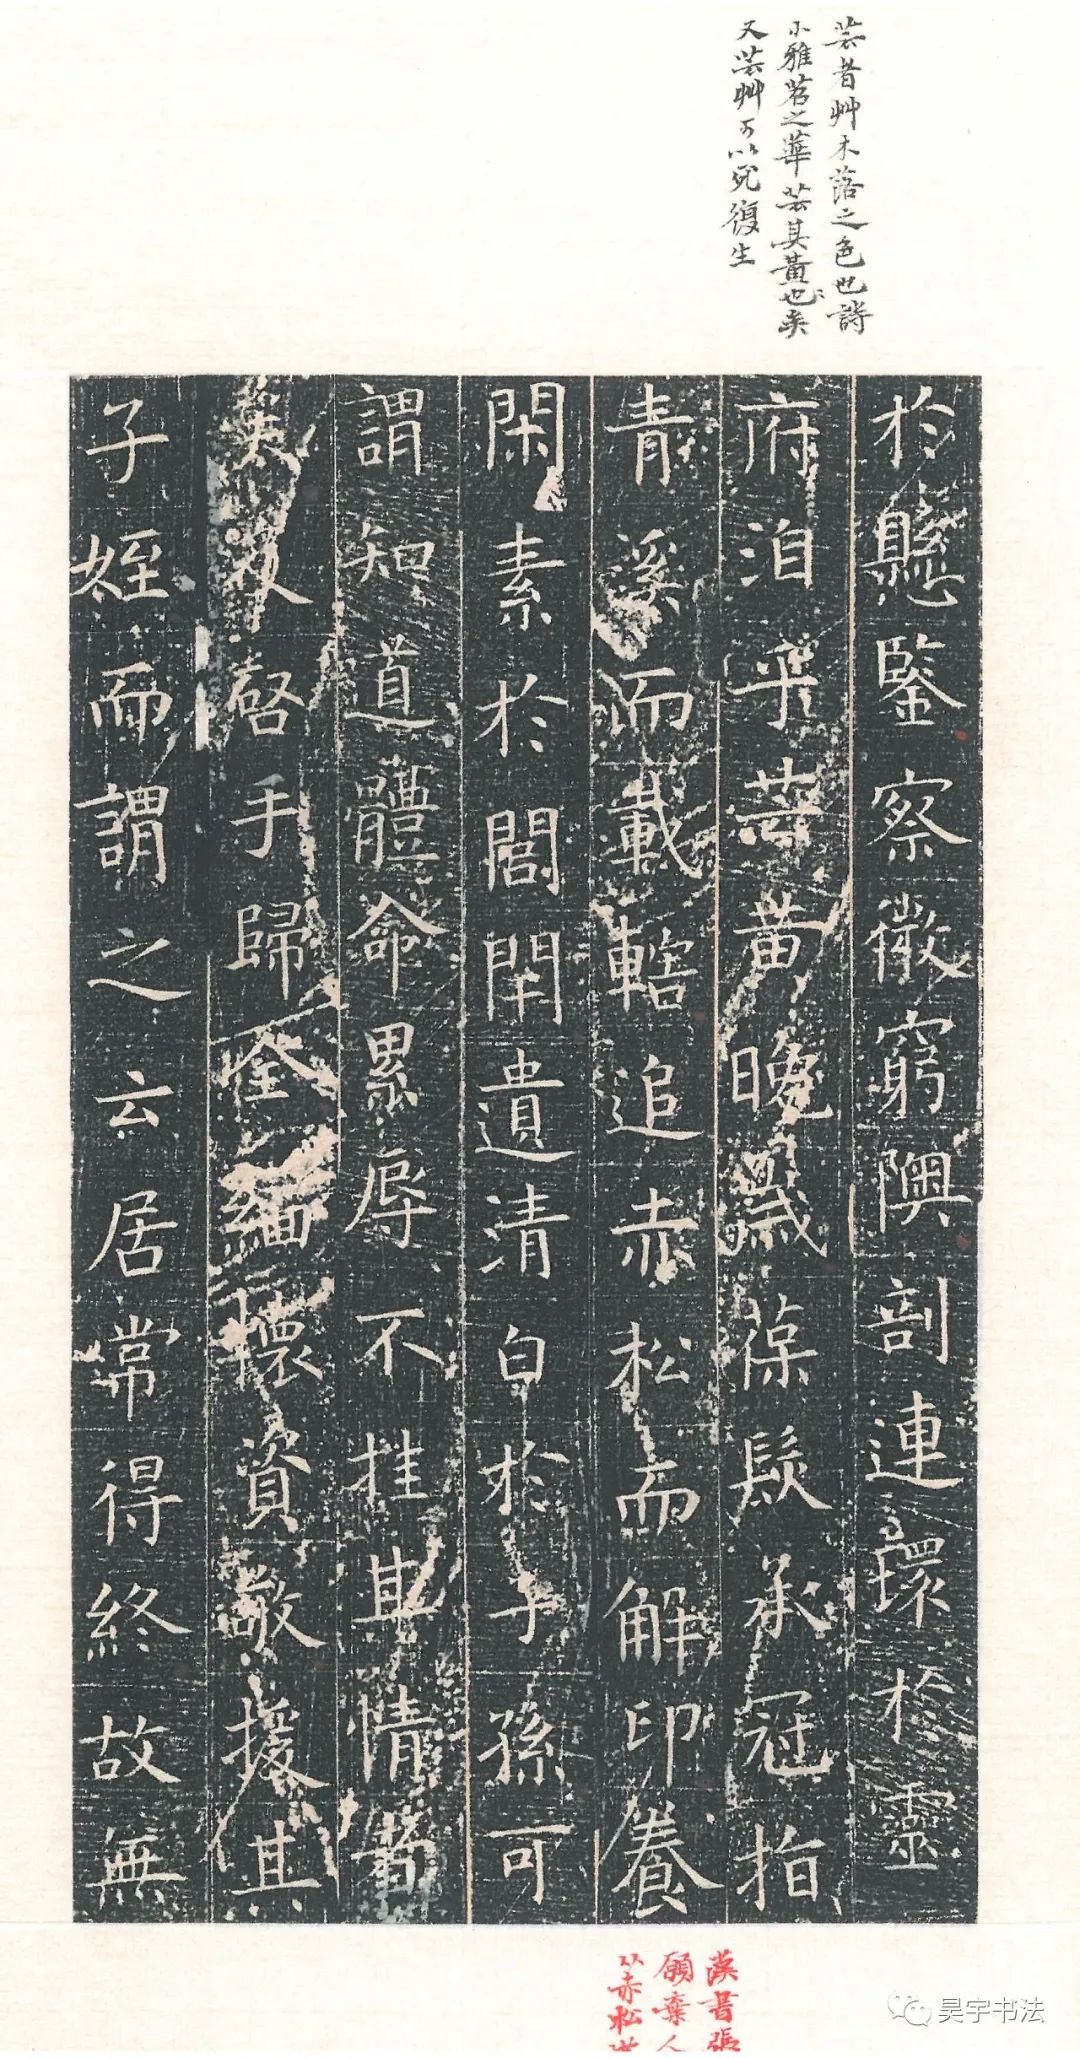 芸者艸木落之色也詩
小雅苕之華芸其黃也矣
又芸艸可以死復生
於懸鑒察微窮隩剖連環於靈
府洎乎芸黄晚歲葆髮承冠指
青溪而載轄追赤松而解印養
閑素於閭閈遺清白於子孫可
謂知道體命累辱不挂其情者
矣及啓手歸全緬懷資敬援其
子姪而謂之云居常得終故無
漢書張
願棄人
从赤松
昊宇书法